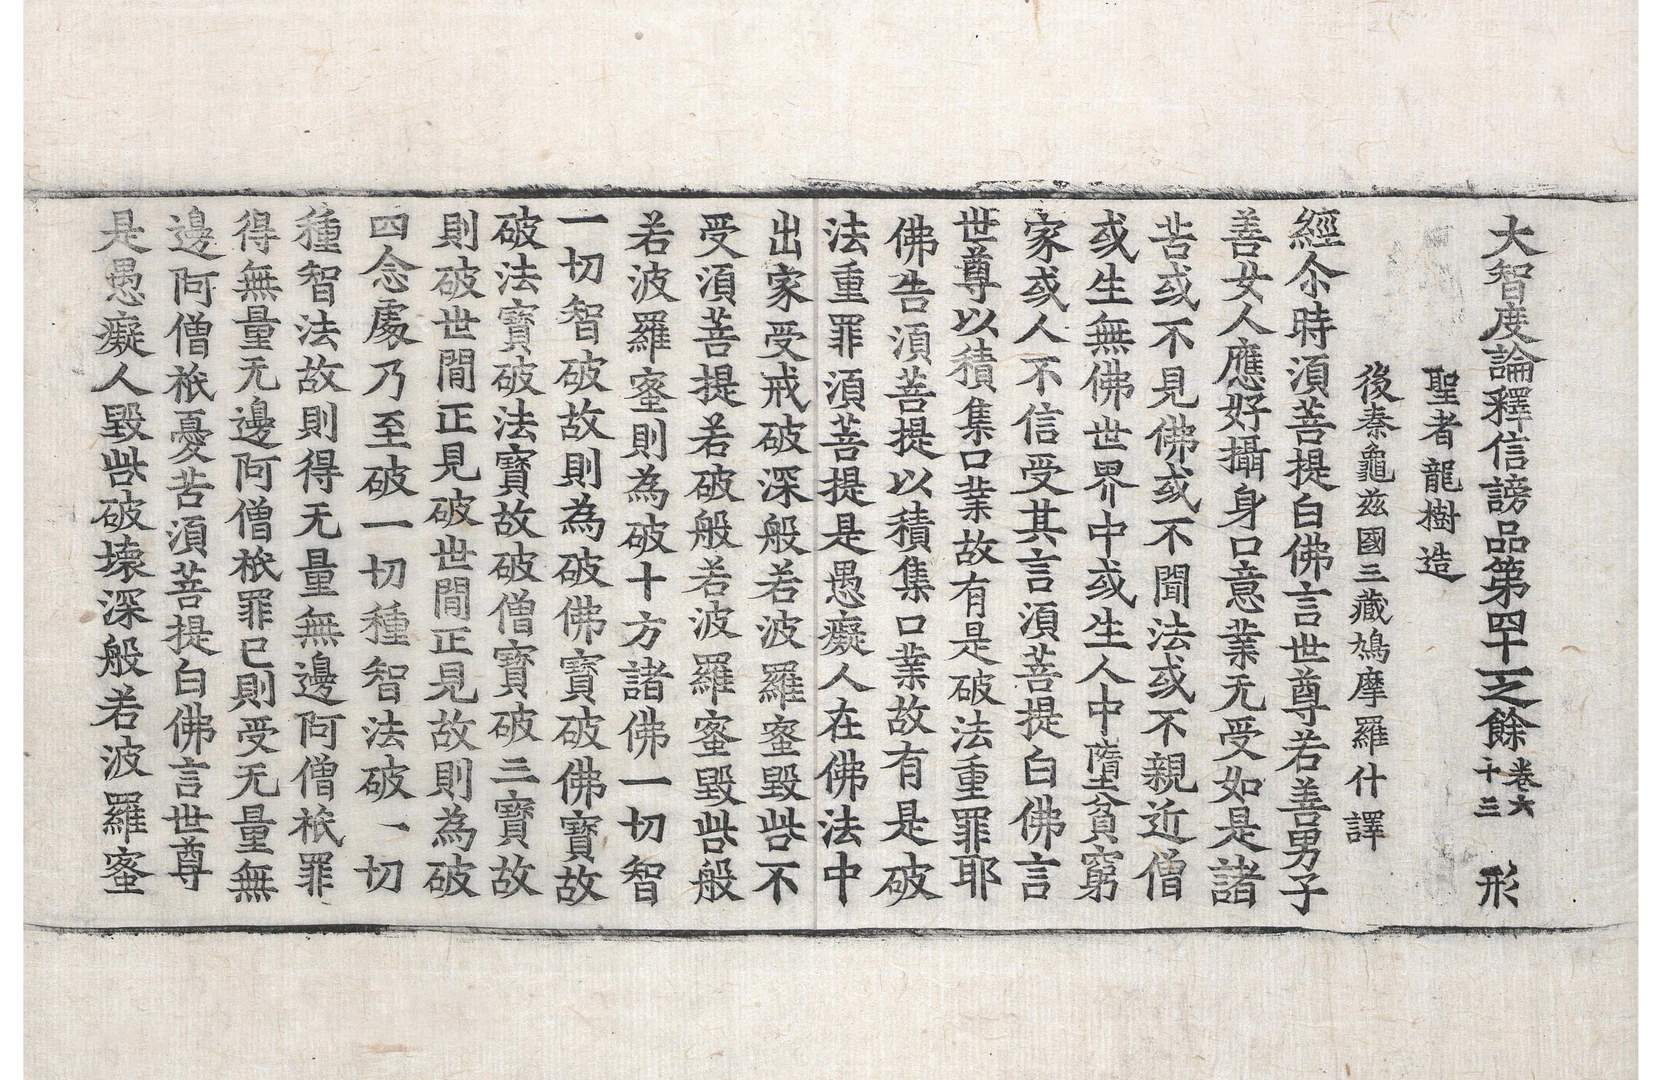 大智度論釋信謗品第四十一之餘 卷六十三 形
聖者龍樹造
後秦龜兹國三藏鳩摩羅什譯
經尒時湏菩提白佛言世尊若善男子
善女人應好攝身口意業无受如是諸
苦或不見佛或不聞法或不親近僧
或生無佛世界中或生人中墮貧窮
家或人不信受其言湏菩提白佛言
世尊以積集口業故有是破法重罪耶
佛告湏菩提以積集口業故有是破
法重罪湏菩提是愚癡人在佛法中
出家受戒破深般若波羅蜜毀呰不
受湏菩提若破般若波羅蜜毀呰般
若波羅蜜則為破十方諸佛一切智
一切智破故則為破佛寶破佛寶故
破法寶破法寶故破僧寶破三寶故
則破世間正見破世間正見故則為破
四念處乃至破一切種智法破一切
種智法故則得无量無邊阿僧祇罪
得無量无邊阿僧祇罪已則受无量無
邊阿僧祇憂苦湏菩提白佛言世尊
是愚癡人毀呰破壞深般若波羅蜜